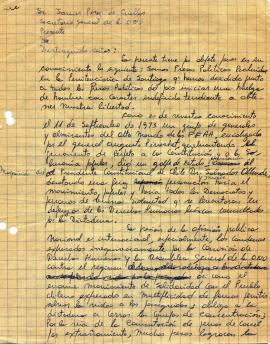 Sr. Javier Perez de Cuellar
Secretario General de la ONU
Presente
Distinguido señor:
La presente tiene por objeto poner en su
conocimiento lo siguiente: Somos Presos Políticos Recluidos
en la Penitenciaria de Santiago y hemos decidido junto
a todos los Presos Políticos del país iniciar una Huelga
de Hambre con carácter indefinido tendiente a obte-
ner nuestra Libertad.
Como es de vuestro conocimiento
el 11 de Septiembre de 1973 un grupo de generales y
almirantes del alto Mando de las FF.AA. encabezados
por el general Augusto Pinochet, quebrantaron
juramento de Respeto a la Constitución y a la So-
golpe de estado
Presidente Constitucional de Chile Dr. Salvador Allende,
desatando una
movimiento popular y todos los Demócratas y
personas de buena voluntad que se levantaron en
defensa de los Derechos Humanos básicos conculcados
por la Dictadura.
La presión de la opinión pública
Nacional e internacional, especialmente, las condenas
de la Comisión de
Derechos Humanos y la Asamblea General de la ONU
contra el régimen
así como el
enorme movimiento de solidaridad con el Pueblo
chileno expresado en multiplicidad de formas
obligó a la
dictadura a cerrar los campos de concentración,
por la vía de la conmutación de penas de cárcel
por extrañamiento, muchos presos lograron la